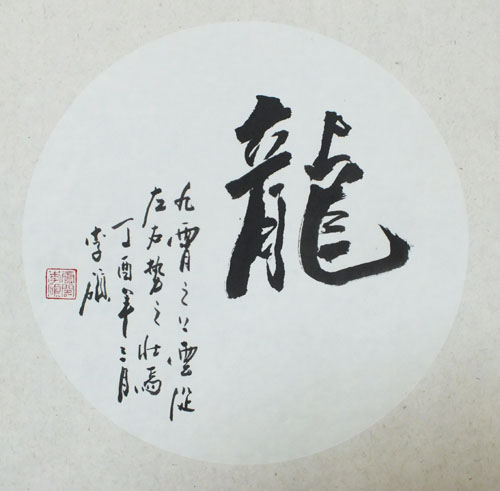 龍
九霄之上雲從
左右勢之壯焉
丁酉年三月
李碩